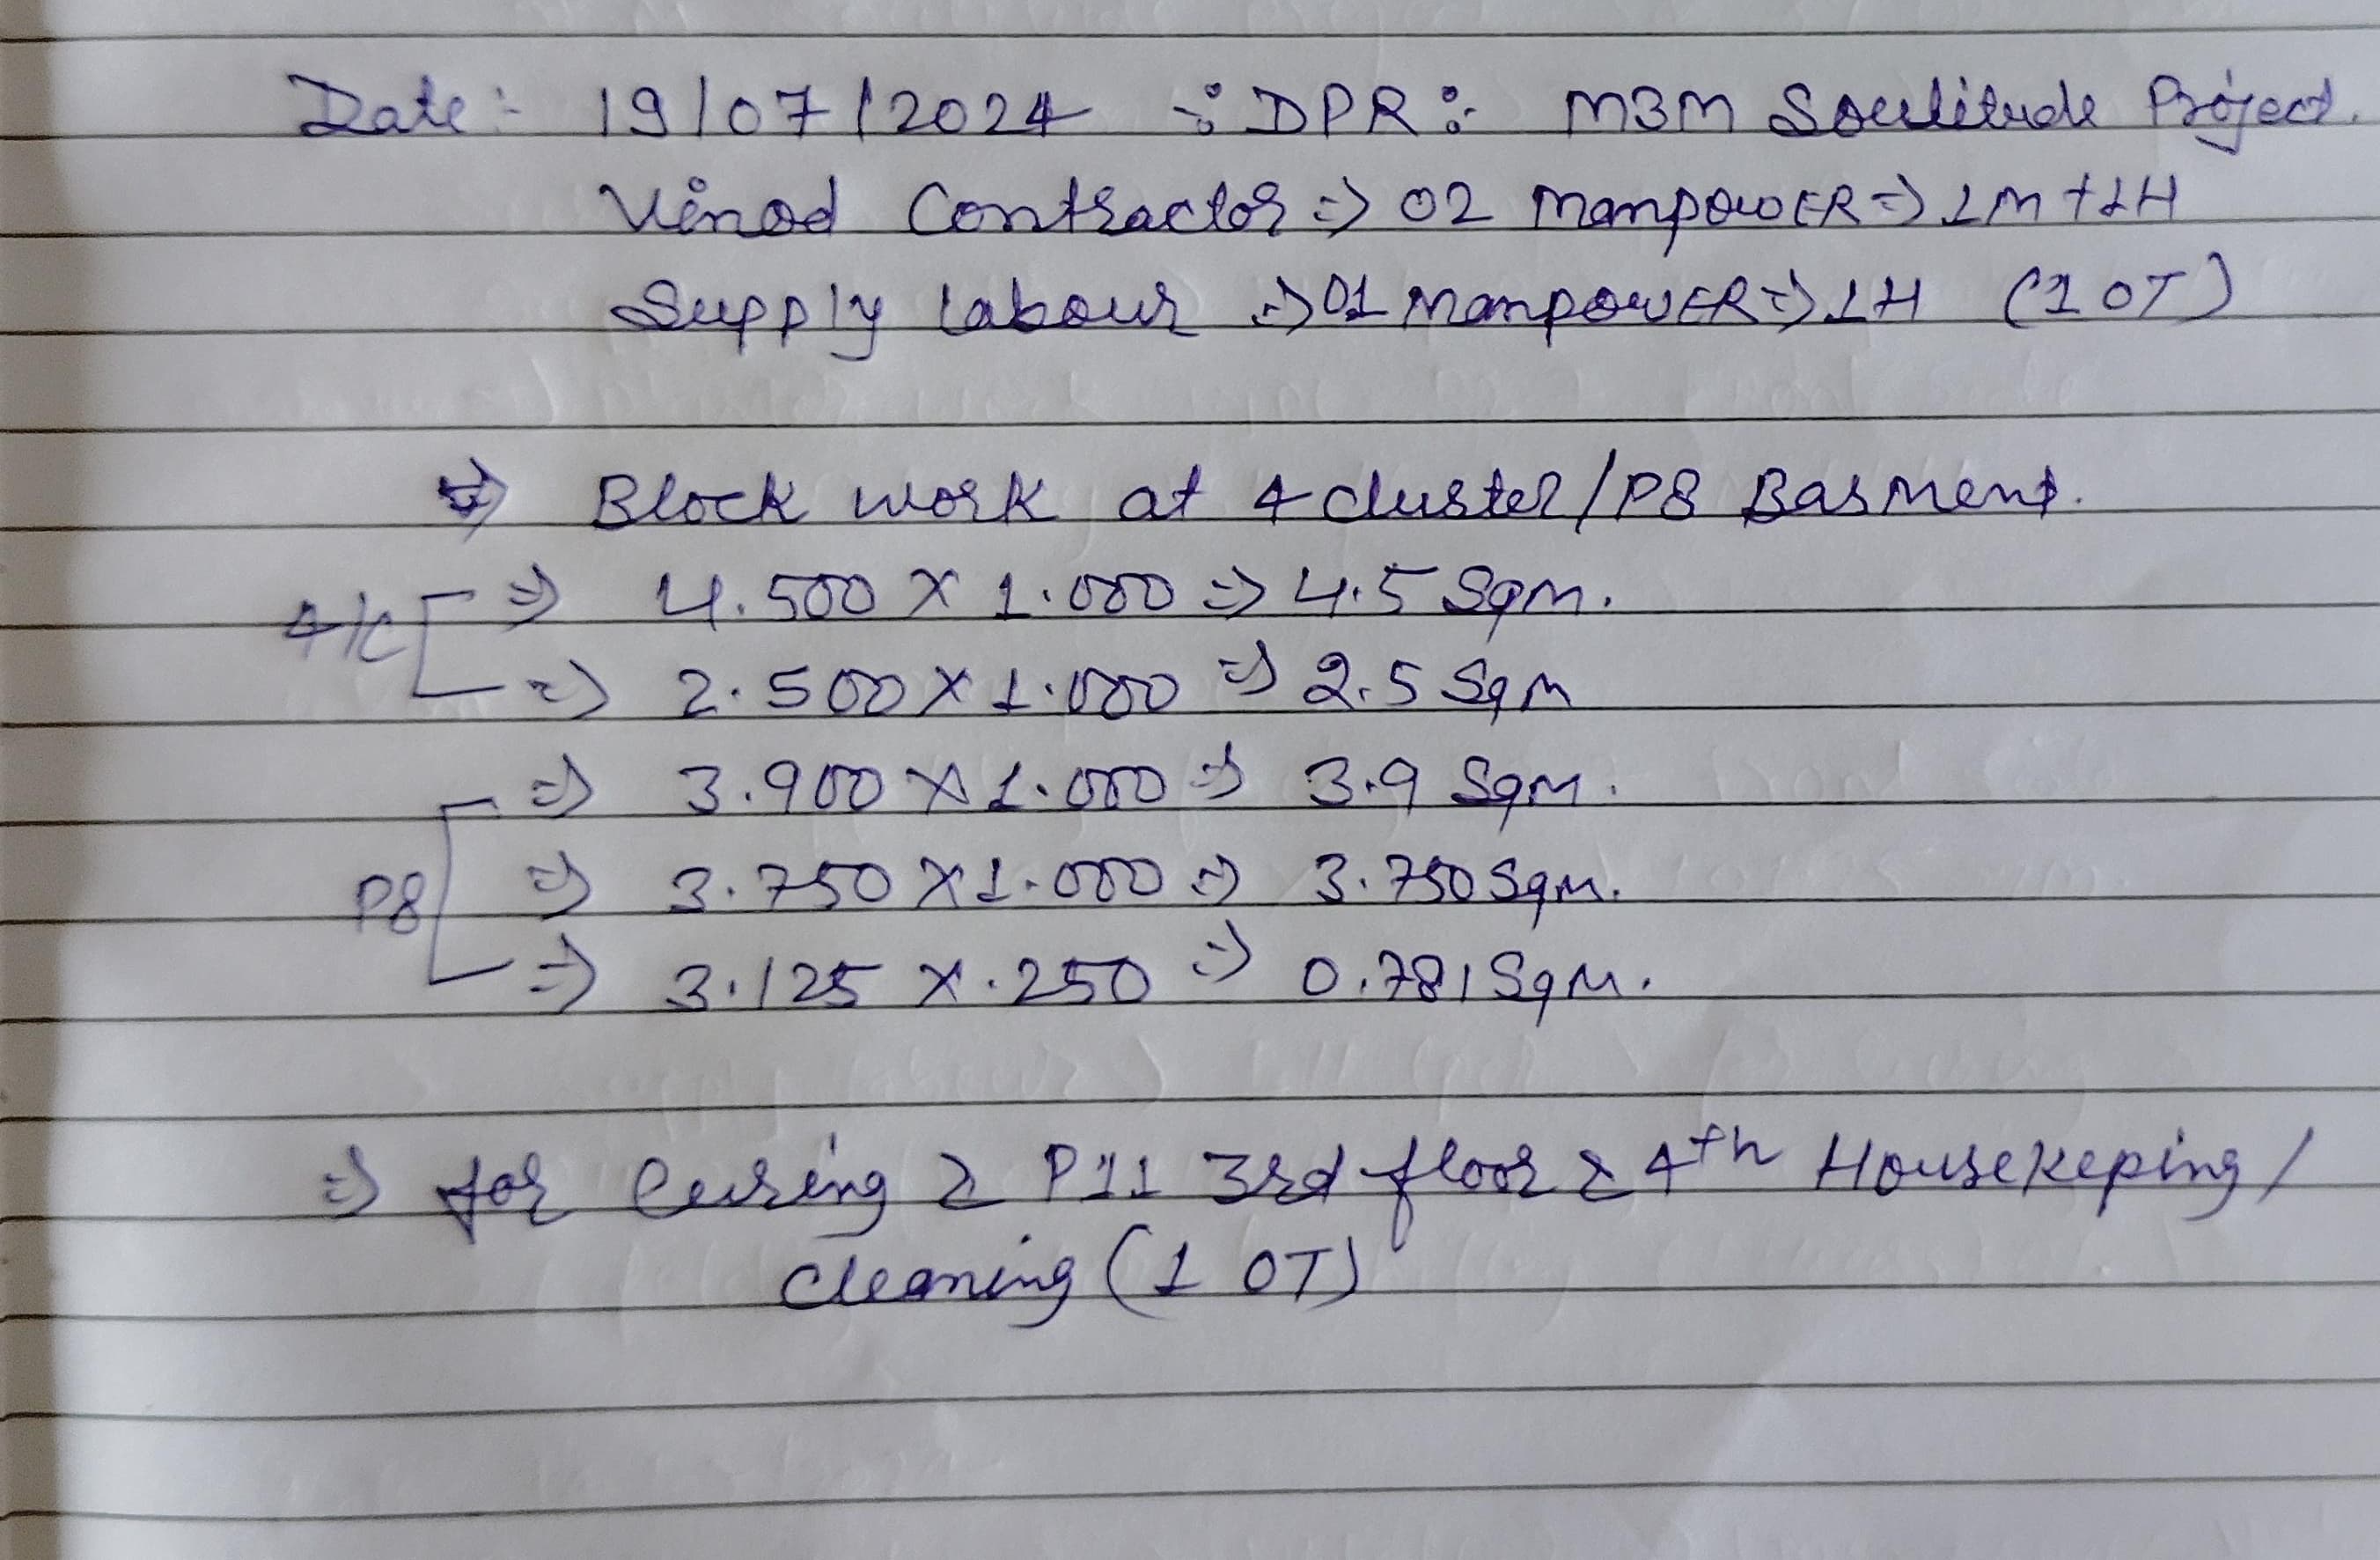 Date:- 19/07/2024 -:DPR:- M3M Soulitude Project.
Vinod Contractor => 02 ManpowER => 1M+1H
Supply labour => 01 ManpowER => 1H (1 OT)
=> Block work at 4 cluster/P8 Basment.
4/C => 4.500 X 1.000 => 4.5 Sqm.
=> 2.500 X 1.000 => 2.5 Sqm
=> 3.900 X 1.000 => 3.9 Sqm.
P8 => 3.750 X 1.000 => 3.750 Sqm.
=> 3.125 X .250 => 0.781 Sqm.
=> for Curing & P11 3rd floor & 4th Housekeping/
cleaning (1 OT)